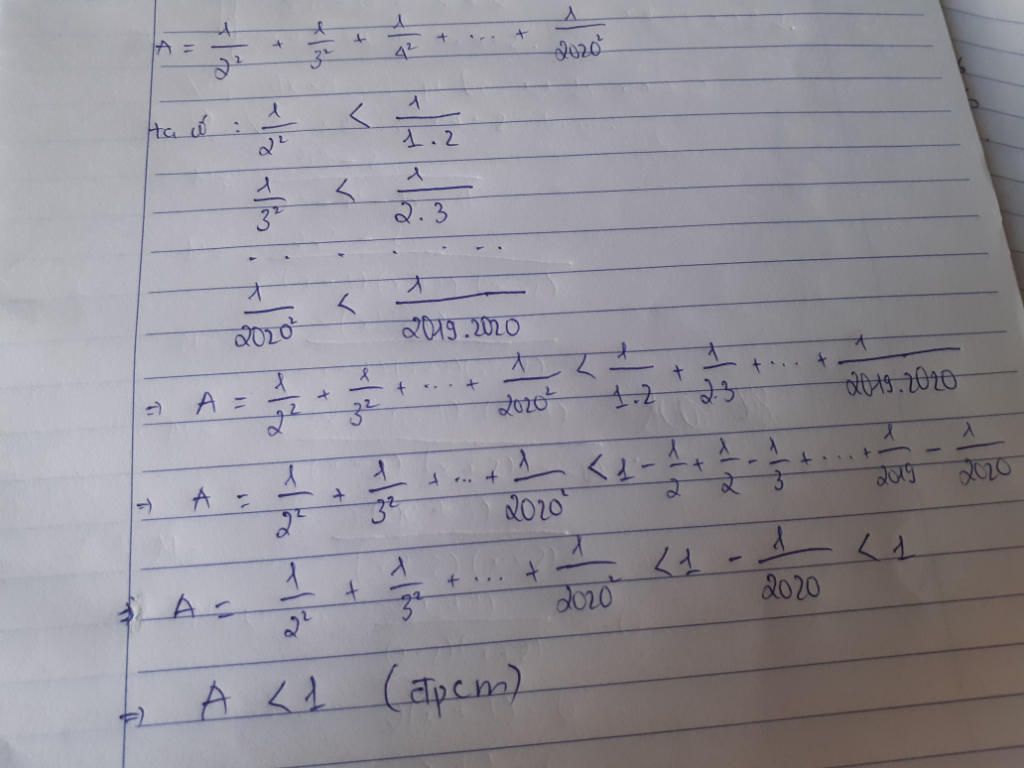 A = 1/2² + 1/3² + 1/4² + ... + 1/2020²
ta có : 1/2² < 1/1.2
1/3² < 1/2.3
.......
1/2020² < 1/2019.2020
=> A = 1/2² + 1/3² + ... + 1/2020² < 1/1.2 + 1/2.3 + ... + 1/2019.2020
=> A = 1/2² + 1/3² + ... + 1/2020² < 1 - 1/2 + 1/2 - 1/3 + ... + 1/2019 - 1/2020
=> A = 1/2² + 1/3² + ... + 1/2020² < 1 - 1/2020 < 1
=> A < 1 (đpcm)